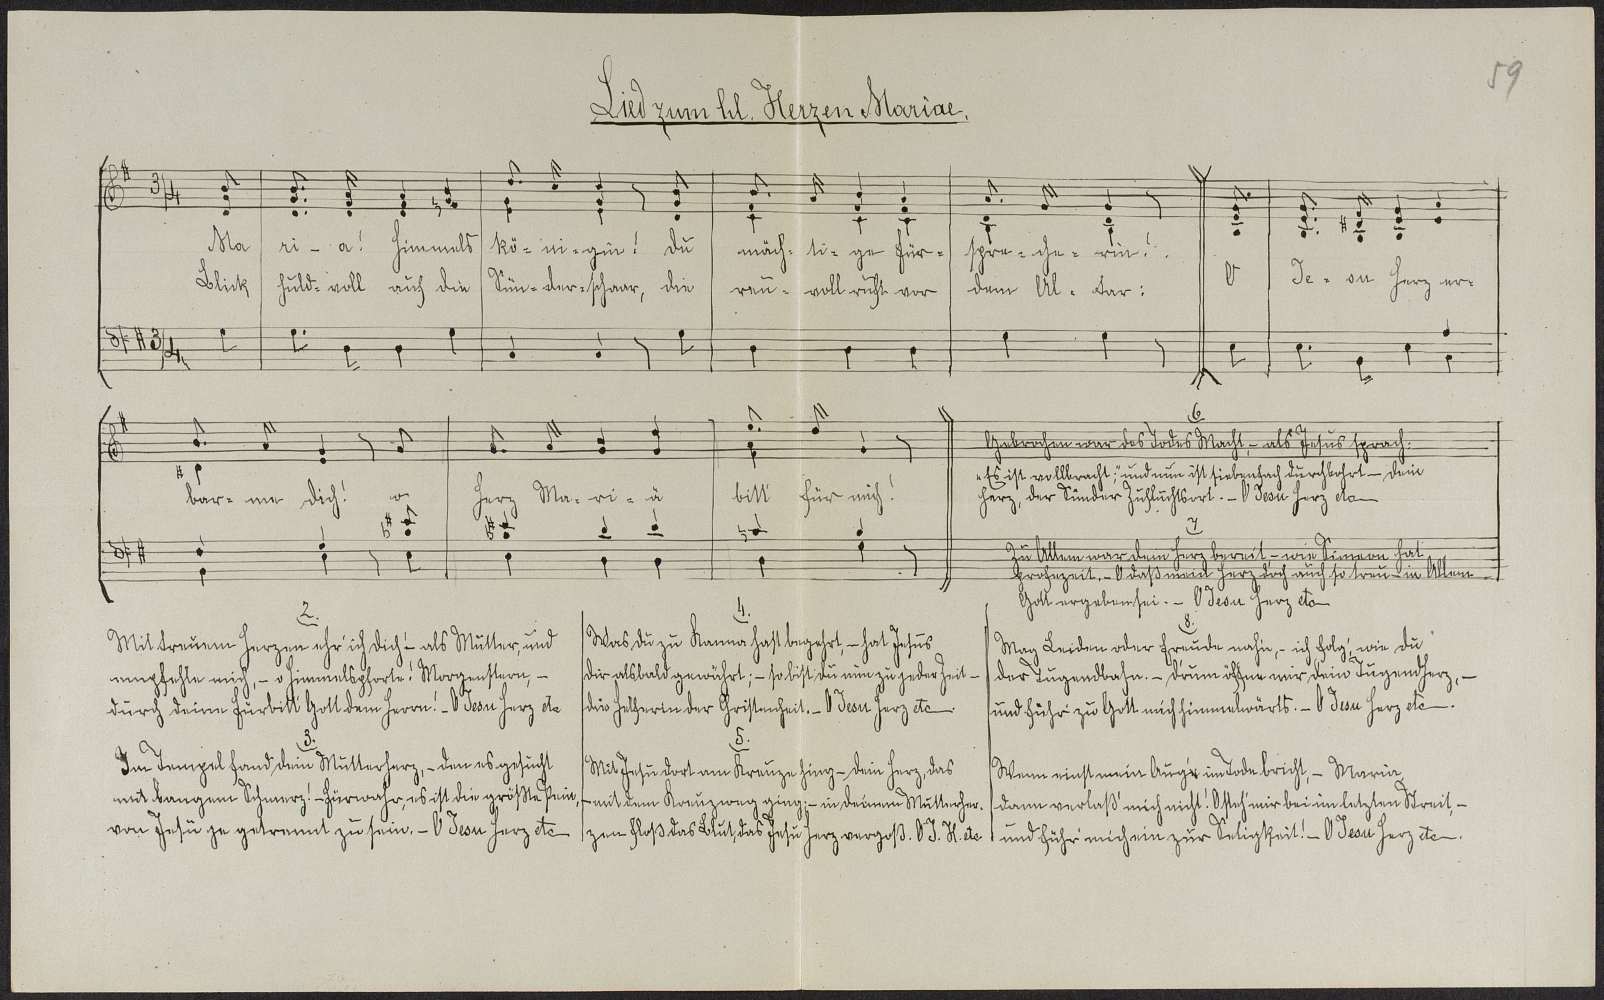 59
Lied zum hl. Herzen Mariae.
3/4
Ma ri - a! Himmels kö - ni - gin! Du mäch - ti - ge Für - spre - che - rin!
Blick huld - voll auf die Sün - der - schaar, die reu - voll ruft vor dem Al - tar:
O Je - su Herz er-
3/4
bar - me dich! o Herz Ma - ri - ä bitt für mich!
6
Gebrochen war des Todes Macht, - als Jesus sprach:
"Es ist vollbracht;" und nun ist siebenfach durchbohrt - dein
Herz, der Sünder Zufluchtsort. - O Jesu Herz etc
7
Zu Allem war dein Herz bereit - wie Simeon hat
profezeit. - O daß mein Herz doch auch so treu - in Allem
Gott ergeben sei. - O Jesu Herz etc
2.
Mit treuem Herzen ehr' ich dich! - als Mutter, und
empfehle mich, - o Himmelspforte! Morgenstern, -
durch deine Fürbitt' Gott dem Herrn! - O Jesu Herz etc
3.
Im Tempel fand dein Mutterherz, - den es gesucht
mit bangem Schmerz! - Fürwahr, es ist die größte Pein, -
von Jesu je getrennt zu sein. - O Jesu Herz etc
4.
Was du zu Kanna hast begehrt, - hat Jesus
dir alsbald gewährt; - so bist du nun zu jeder Zeit -
die Helferin der Christenheit. - O Jesu Herz etc
5.
Mit Jesu dort am Kreuze hing - dein Herz, das
mit dem Kreuzweg ging; - in deinem Mutterher-
zen floß das Blut, das Jesu Herz vergoß. O J. H. etc
8.
Mag Leiden oder Freude nah'n, - ich folg', wie du
der Tugendbahn. - Drum öffne mir dein Tugendherz, -
und führ' zu Gott mich himmelwärts. - O Jesu Herz etc.
Wenn einst mein Aug' im Tode bricht, - Maria
dann verlaß' mich nicht! O steh' mir bei im letzten Streit, -
und führ' mich ein zur Seligkeit! - O Jesu Herz etc.